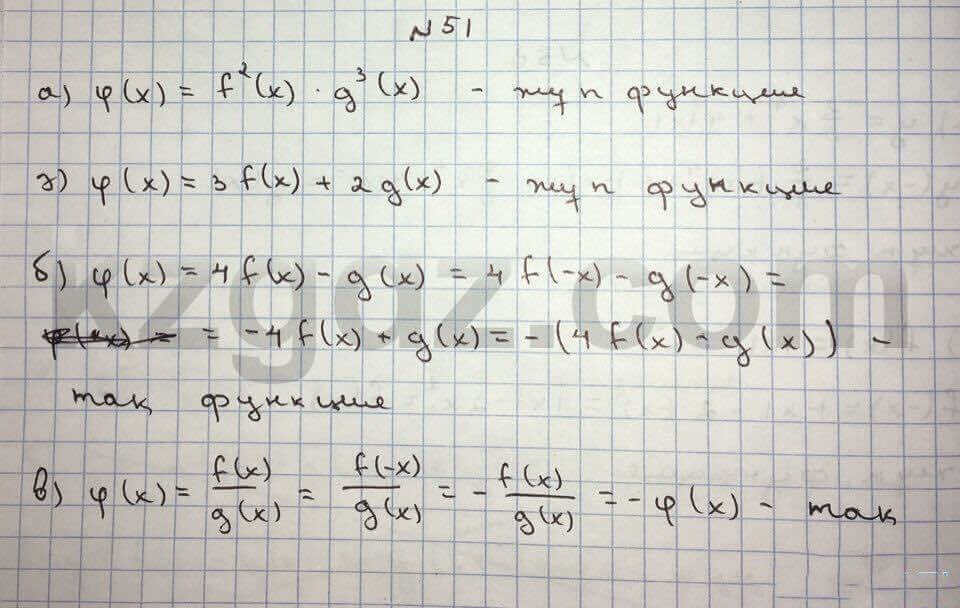 № 51
а) φ(x) = f²(x) · g³(x) - жұп функция
г) φ(x) = 3 f(x) + 2 g(x) - жұп функция
б) φ(x) = 4 f(x) - g(x) = 4 f(-x) - g(-x) =
= -4 f(x) + g(x) = -(4 f(x) - g(x)) -
тақ функция
в) φ(x) = f(x)/g(x) = f(-x)/g(x) = - f(x)/g(x) = -φ(x) - тақ
kzgdz.com